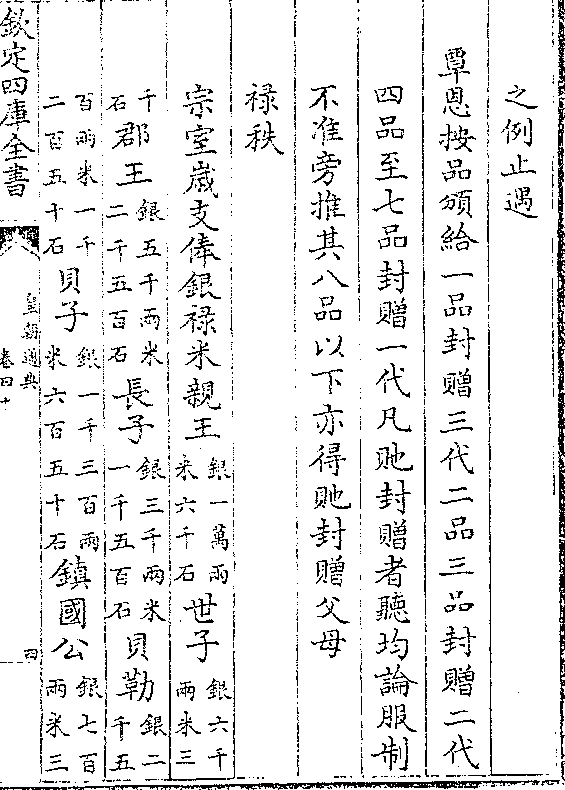 之例止遇
覃恩按品頒給一品封贈三代二品三品封贈二代
四品至七品封贈一代凡貤封贈者聽均論服制
不准旁推其八品以下亦得貤封贈父母
禄秩
宗室嵗支俸銀禄米親王銀一萬兩米六千石世子銀六千兩米三
千石郡王銀五千兩米二千五百石長子銀三千兩米一千五百石貝勒銀二千五
百兩米一千二百五十石貝子銀一千三百兩米六百五十石鎮國公銀七百兩米三
欽定四庫全書
皇朝通典
卷四十
四